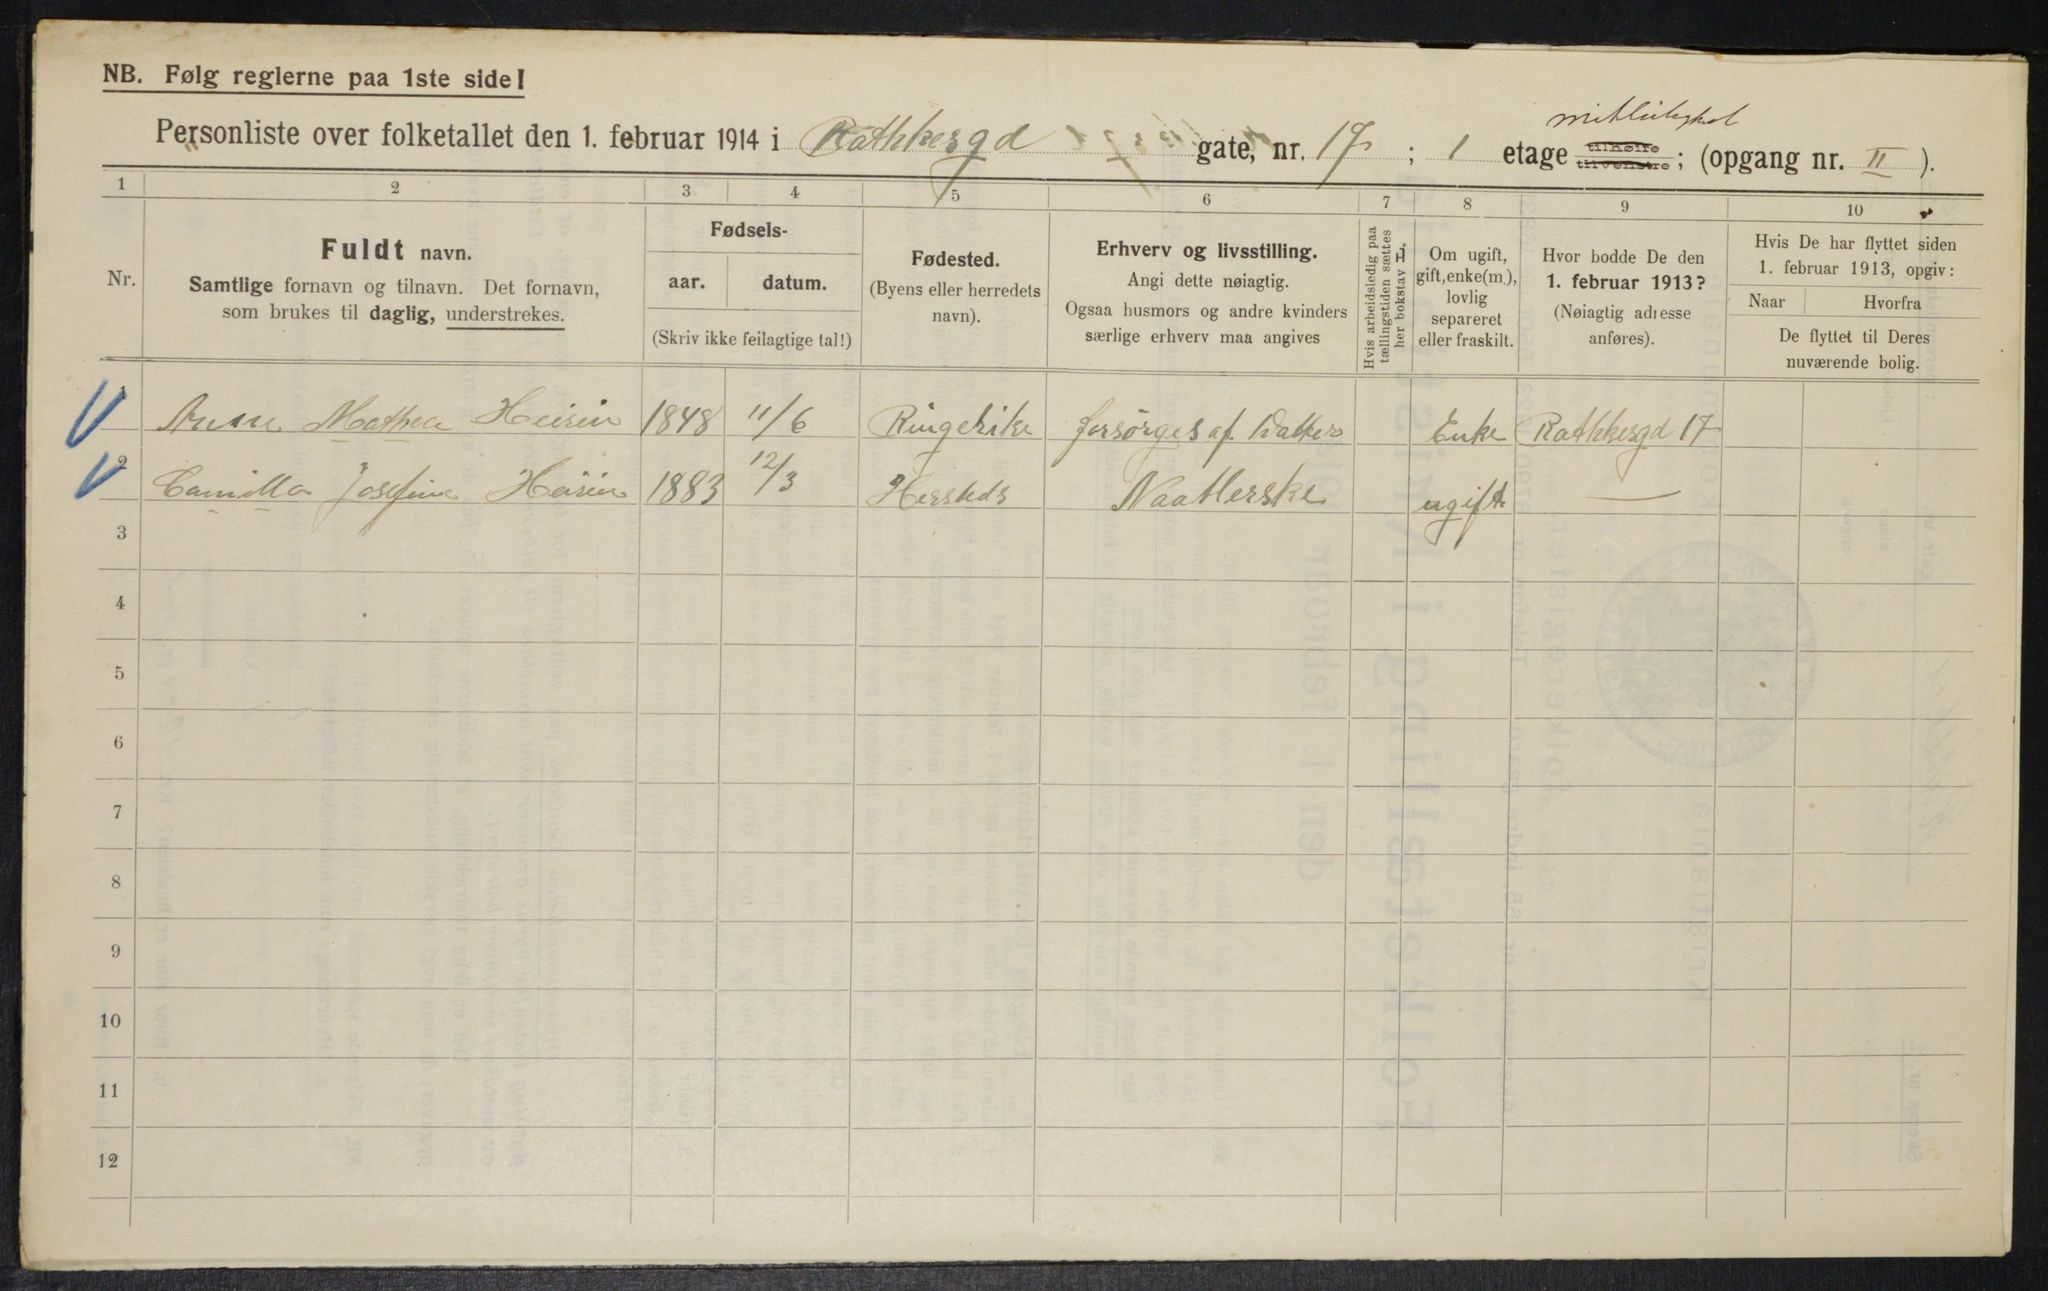 NB. Følg reglerne paa 1ste side!
mitleilighet
Personliste over folketallet den 1. februar 1914 i Rathkesgd gate, nr. 17 ; 1 etage tilhøire tilvenstre ; (opgang nr. II ).
1 2 3 4 5 6 7 8 9 10
Nr.
Fuldt navn.
Samtlige fornavn og tilnavn. Det fornavn,
som brukes til daglig, understrekes.
Fødsels-
aar. datum.
(Skriv ikke feilagtige tal!)
Fødested.
(Byens eller herredets
navn).
Erhverv og livsstilling.
Angi dette nøiagtig.
Ogsaa husmors og andre kvinders
særlige erhverv maa angives
Hvis arbeidsledig paa
tællingstiden sættes
her bokstav L.
Om ugift,
gift, enke(m.),
lovlig
separeret
eller fraskilt.
Hvor bodde De den
1. februar 1913?
(Nøiagtig adresse
anføres).
Hvis De har flyttet siden
1. februar 1913, opgiv:
Naar Hvorfra
De flyttet til Deres
nuværende bolig.
1 Anne Mathea 1848 11/6 Ringerike forsørges af Datter Enke Rathkesgd 17
2 Camilla Josefine 1883 12/3 Naatlerske ugift —
3
4
5
6
7
8
9
10
11
12